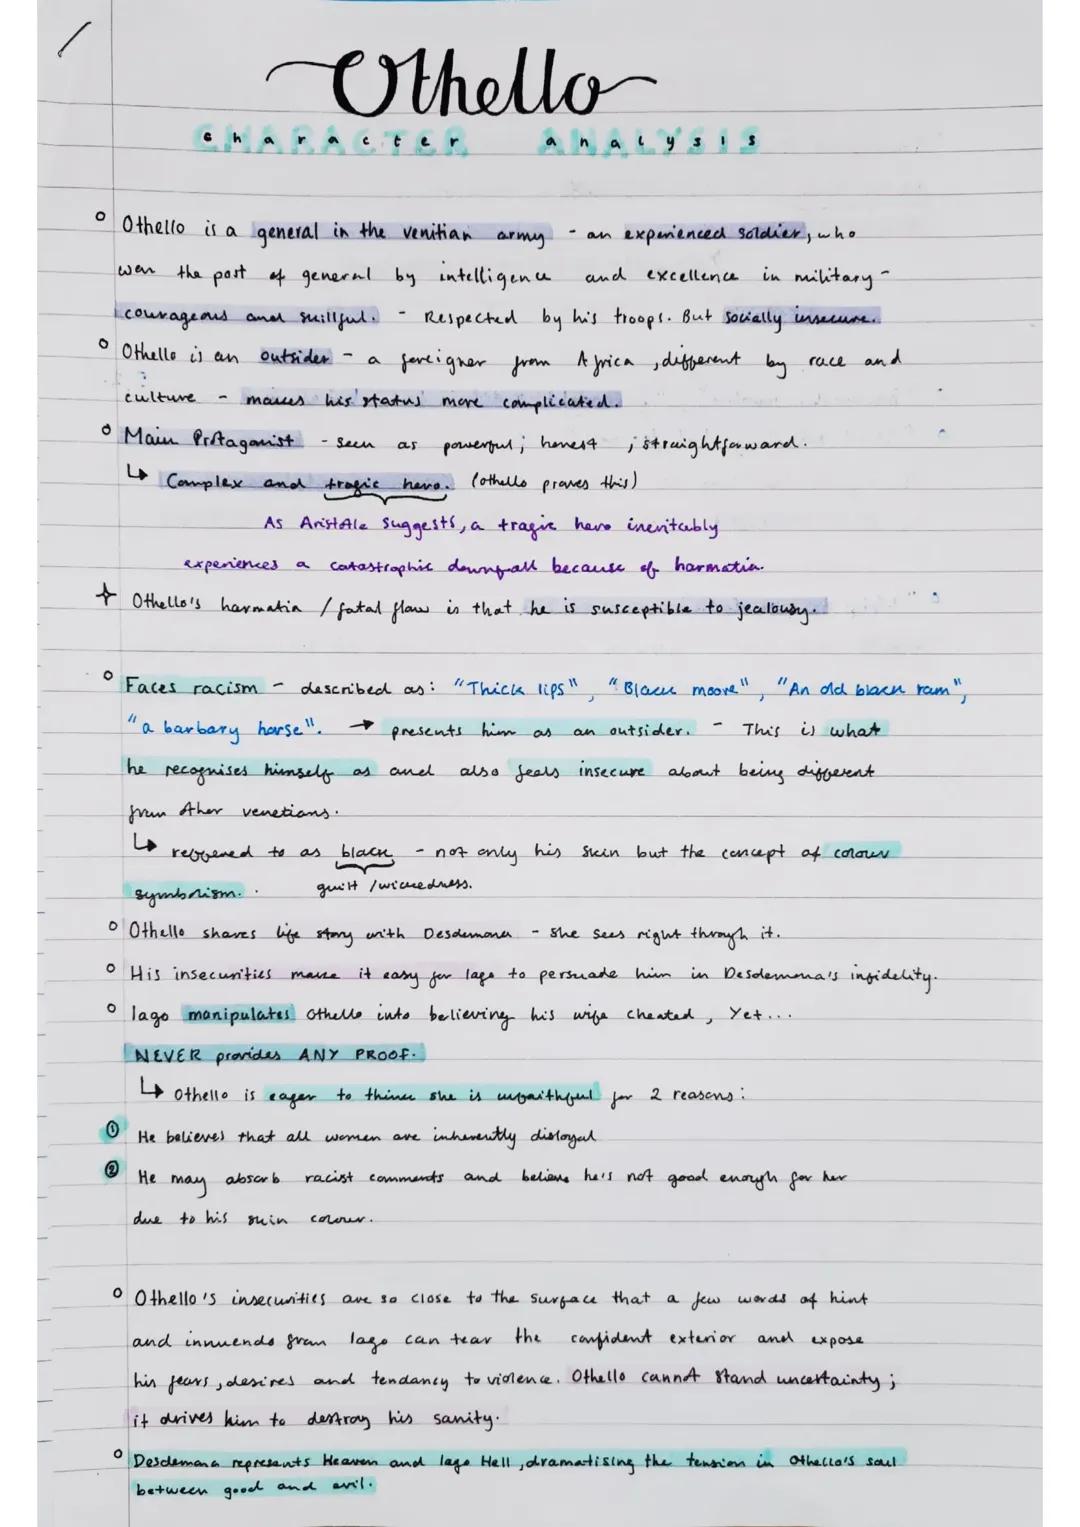 Othello
character analysis
Othello is a general in the venitian army - an experienced soldier, who
won the post of general by intelligence and excellence in military -
courageous and skillful. - Respected by his troops. But socially insecure.
Othello is an outsider - a foreigner from Africa, different by race and
culture - makes his 'status' more complicated.
Main Protagonist - seen as powerful; honest ; straightforward.
↳ Complex and tragic hero. (othello proves this)
As Aristotle suggests, a tragic hero inevitably
experiences a catastrophic downfall because of harmatia.
Othello's harmatia / fatal flaw is that he is susceptible to jealousy.
Faces racism - described as: "Thick lips", "Black moore", "An old black ram",
"a barbary horse". → presents him as an outsider. - This is what
he recognises himself as and also feels insecure about being different
from other venetians.
↳ reffered to as black - not only his skin but the concept of colour
symbolism. guilt / wickedness.
Othello shares life story with Desdemona - she sees right through it.
His insecurities make it easy for Iago to persuade him in Desdemona's infidelity.
Iago manipulates Othello into believing his wife cheated, Yet...
NEVER provides ANY PROOF.
↳ Othello is eager to think she is unfaithful for 2 reasons:
① He believes that all women are inherently disloyal
② He may absorb racist comments and believe he's not good enough for her
due to his skin colour.
Othello's insecurities are so close to the surface that a few words of hint
and innuendo from Iago can tear the confident exterior and expose
his fears, desires and tendancy to violence. Othello cannot stand uncertainty;
it drives him to destroy his sanity.
Desdemona represents Heaven and Iago Hell, dramatising the tension in Othello's soul
between good and evil.